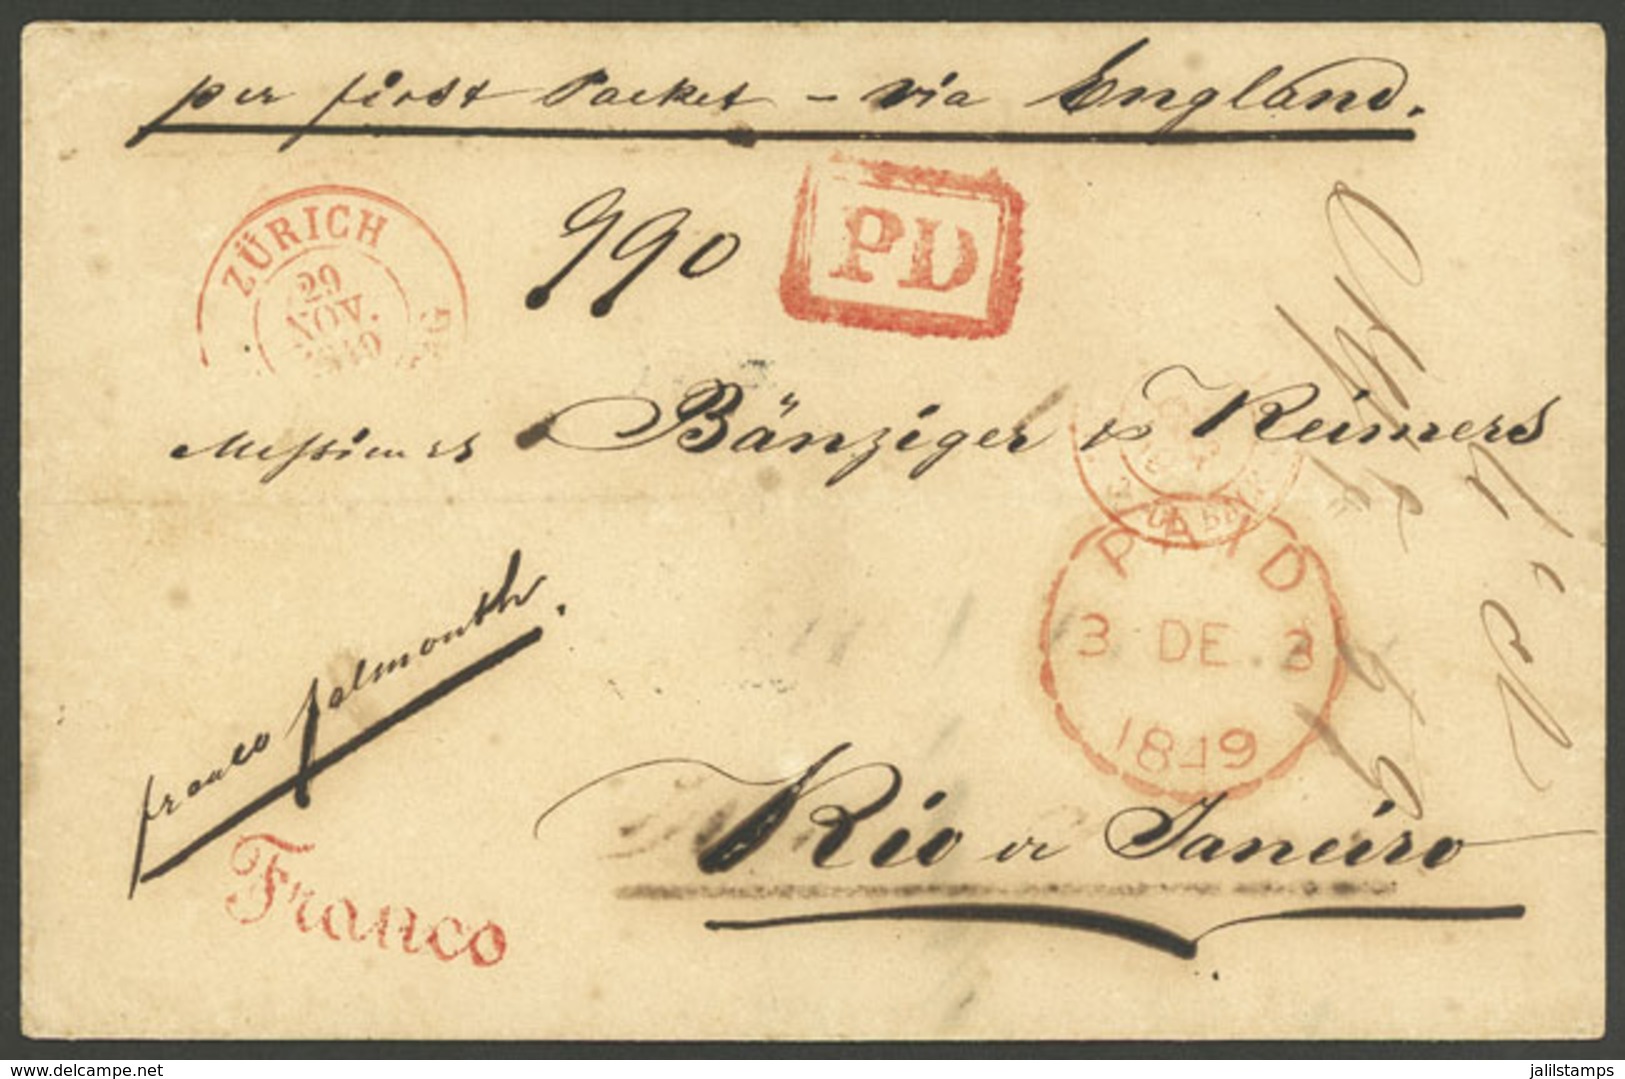 per first Packet – via England.
ZÜRICH
29
NOV.
1849
990
PD
Messieurs Bänziger & Reimers
PAID
3 DE. 3
1849
franco falmouth.
Franco
Rio de Janeiro
delcampe.net
jalilstamps